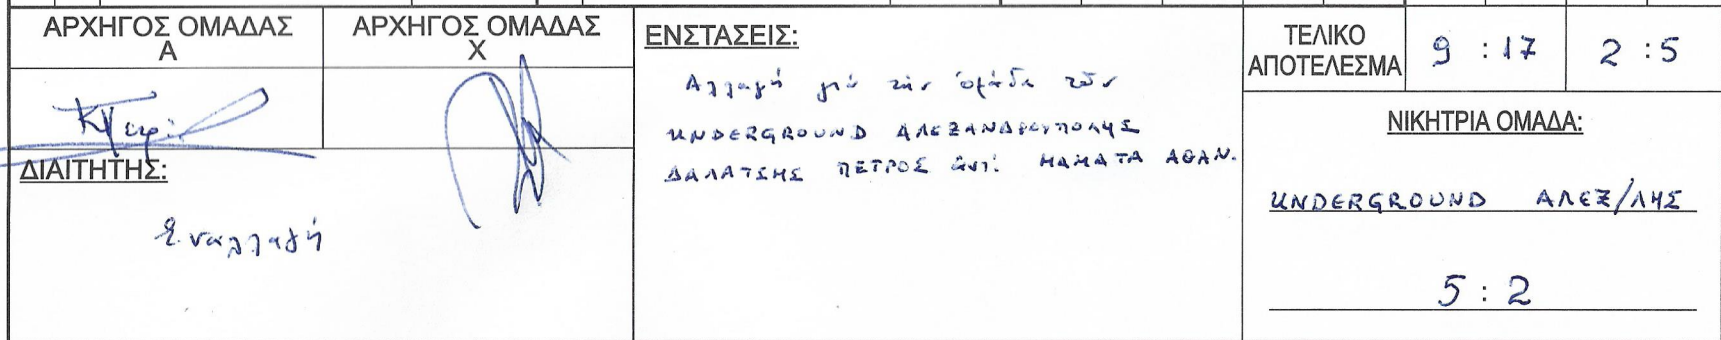 ΑΡΧΗΓΟΣ ΟΜΑΔΑΣ Α
ΑΡΧΗΓΟΣ ΟΜΑΔΑΣ Χ
ΔΙΑΙΤΗΤΗΣ:
Εναλλαγή
ΕΝΣΤΑΣΕΙΣ:
Αλλαγή γιά τήν ὁμάδα τῶν
UNDERGROUND ΑΛΕΞΑΝΔΡΟΥΠΟΛΗΣ
ΔΑΛΑΤΣΗΣ ΠΕΤΡΟΣ ἀντί ΜΑΜΑΤΑ ΑΘΑΝ.
ΤΕΛΙΚΟ ΑΠΟΤΕΛΕΣΜΑ
9 : 17
2 : 5
ΝΙΚΗΤΡΙΑ ΟΜΑΔΑ:
UNDERGROUND ΑΛΕΞ/ΛΗΣ
5 : 2